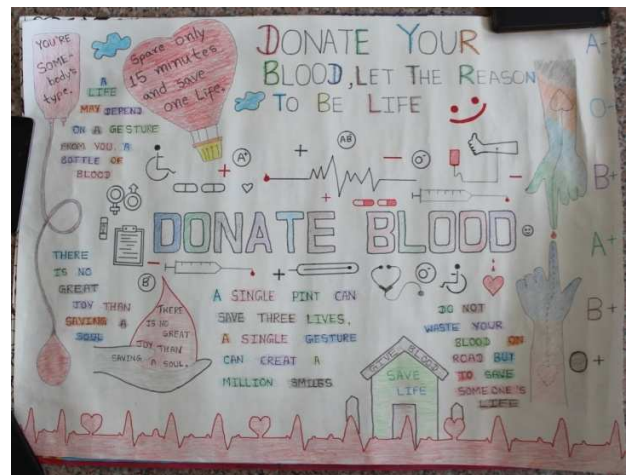 YOU'RE
SOME-
body's
type.
Spare only
15 minutes
and save
one Life.
DONATE YOUR
BLOOD, LET THE REASON
TO BE LIFE
A
LIFE
MAY DEPEND
ON A GESTURE
FROM YOU, A
BOTTLE OF
BLOOD
A-
O-
B+
A+
B+
O+
A+
AB
O-
DONATE BLOOD
B-
O-
THERE
IS NO
GREAT
JOY THAN
SAVING A
SOUL
THERE
IS NO
GREAT
JOY THAN
SAVING A SOUL.
A SINGLE PINT CAN
SAVE THREE LIVES,
A SINGLE GESTURE
CAN CREAT A
MILLION SMILES
GIVE BLOOD
SAVE
LIFE
DO NOT
WASTE YOUR
BLOOD ON
ROAD BUT
TO SAVE
SOMEONE'S
LIFE